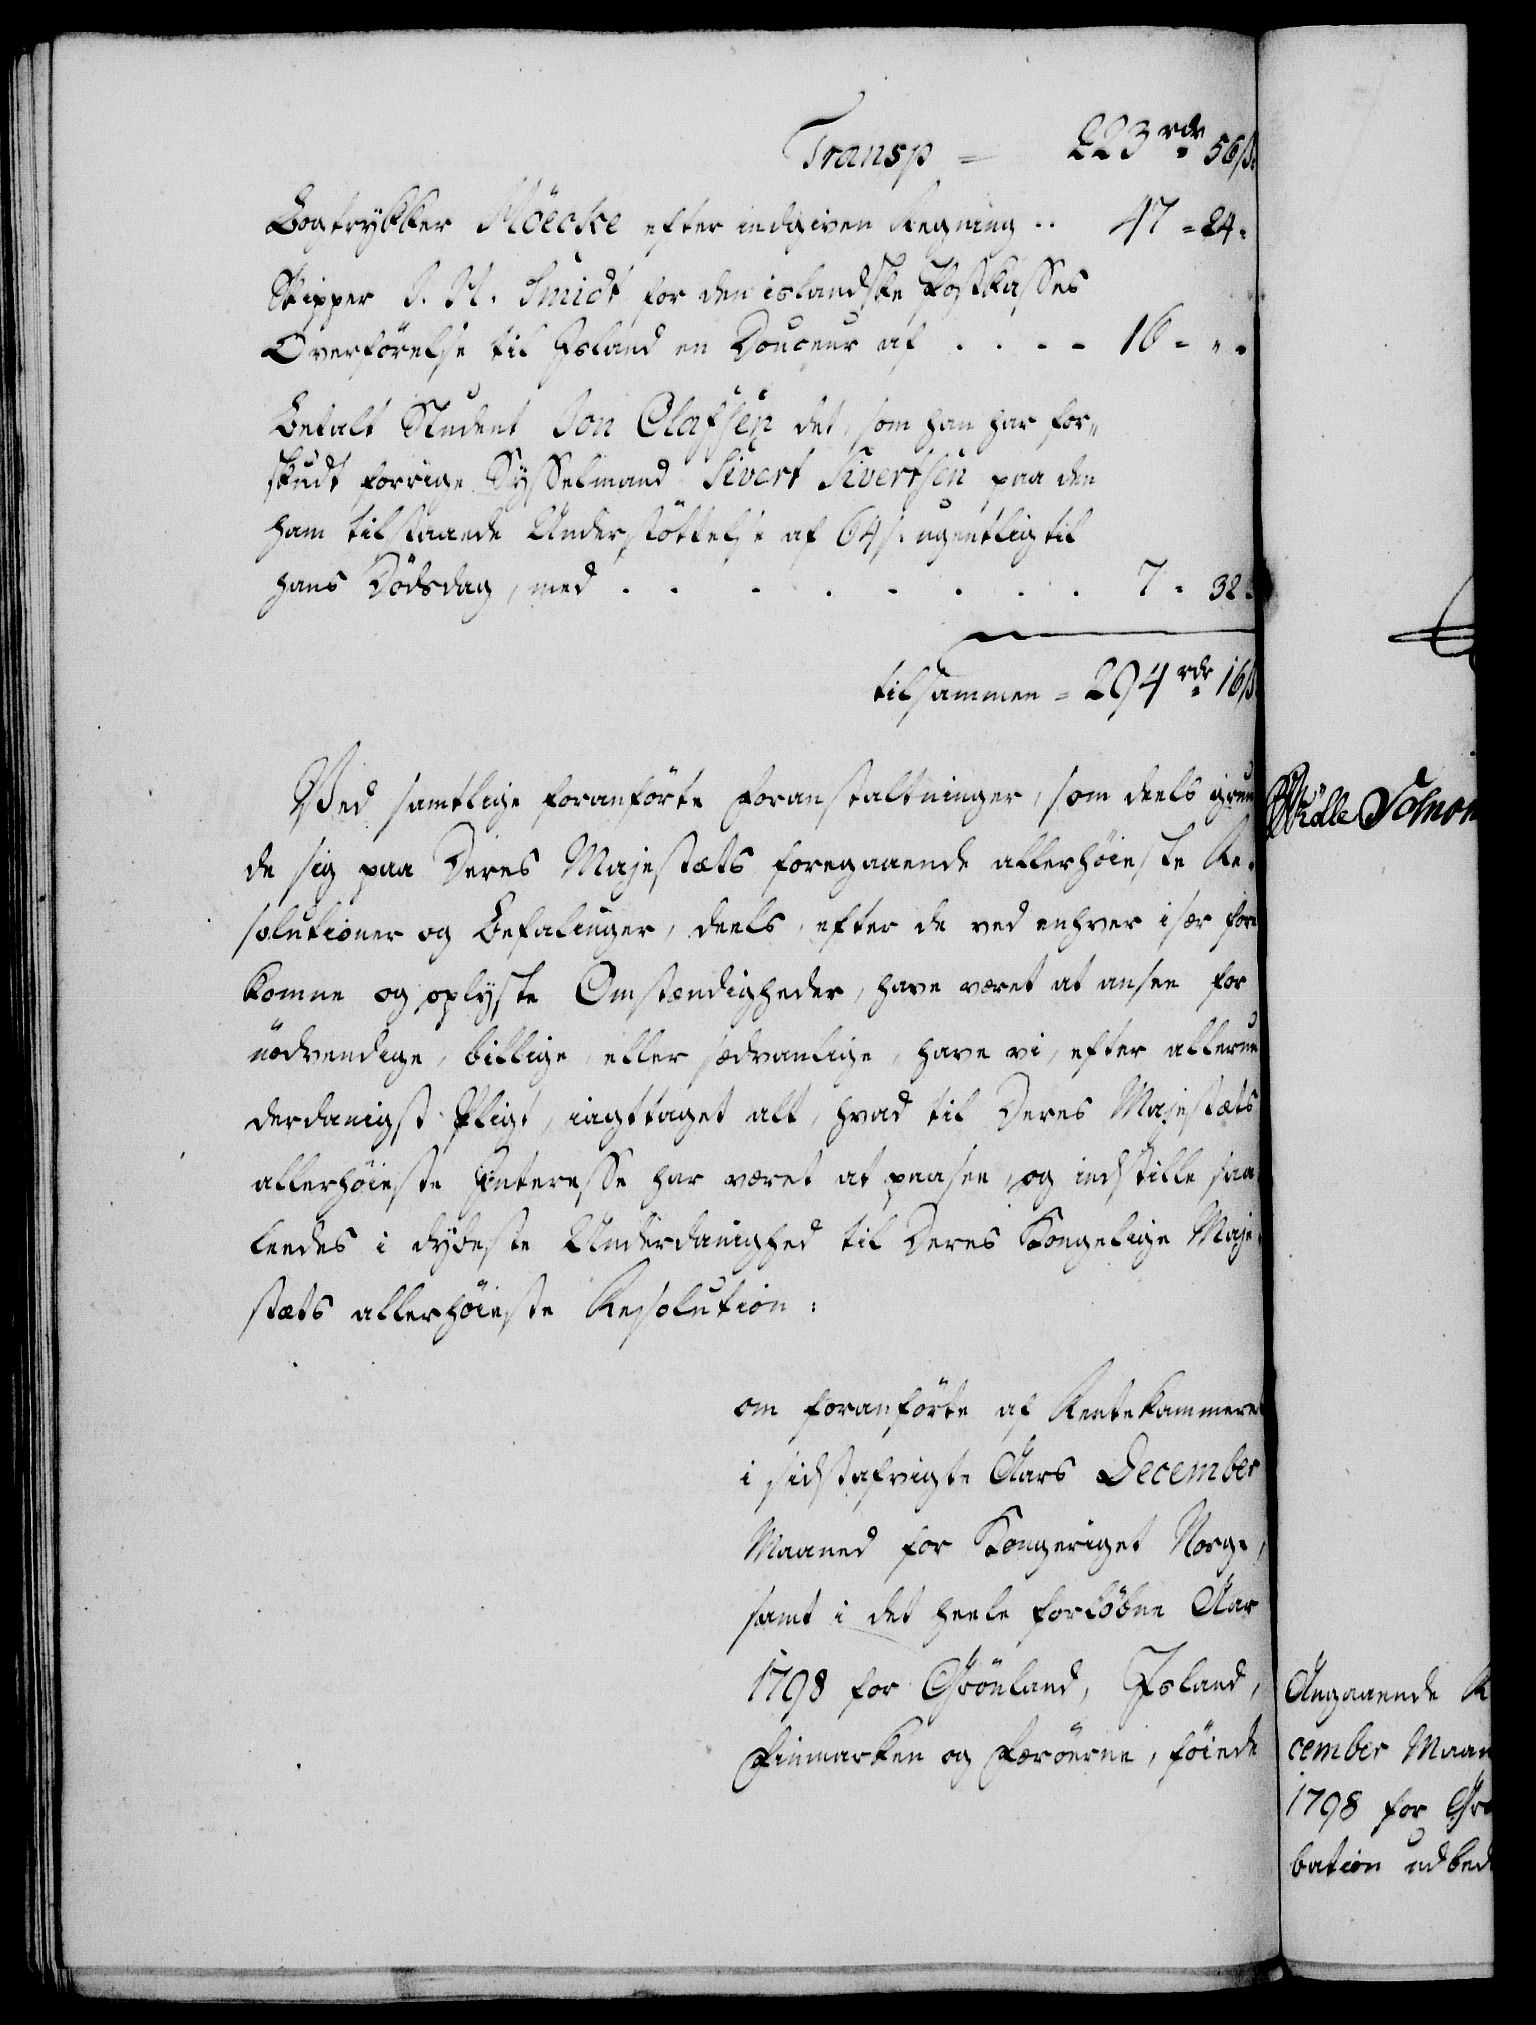 Transp = 223 rdr 56 ß.
Bogtrykker Möecke efter indgiven Regning .. 47 = 24.
Skipper J. H. Smidt for den islandske Postkasses
Overförelse til Island en Douceur af . . . . 16 - „ „
Betalt Student Jon Olafsen det, som han har for„
skudt forrige Sysselmand Sivert Sivertsen paa den
ham tilstaaede Understöttelse af 64 ß. ugentlig til
hans Dödsdag, med . . . . . . . . 7 = 32
tilsammen = 294 rdr 16 ß
Ved samtlige foranförte Foranstaltninger, som deels grun
de sig paa Deres Majestæts foregaaende allerhöieste Re-
solutioner og Befalinger, deels, efter de ved enhver især fore
komne og oplyste Omstændigheder, have været at ansee for
nödvendige, billige eller sædvanlige, have vi, efter allerun
derdanigst Pligt, iagttaget alt, hvad til Deres Majestæts
allerhöieste Interesse har været at paasee, og indstille saa
leedes i dybeste Underdanighed til Deres Kongelige Maje
stæts allerhöieste Resolution:
om foranförte af Rentekammeret
i sidstafvigte Aars December
Maaned for Kongeriget Norge,
samt i det heele forlöbne Aar
1798 for Grönland, Island,
Finmarken og Færöerne, föiede
Angaaende R
cember Maan
1798 for Grö
bation udbed